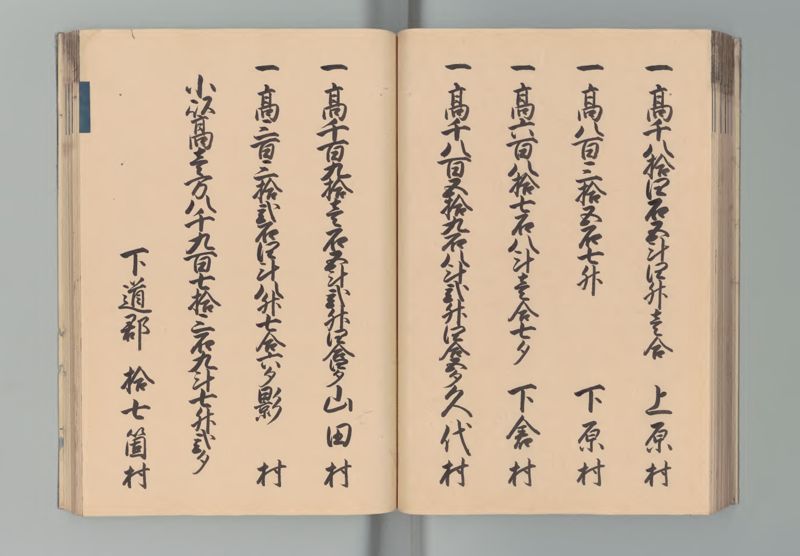 一 高千八拾四石五斗四升壱合 上原村
一 高八百三拾五石七升 下原村
一 高六百八拾七石八斗壱合七夕 下倉村
一 高千八百五拾九石八斗弐升四合五夕 久代村
一 高千百九拾壱石五斗弐升四合四夕 山田村
一 高二百二拾弐石四斗八升七合六夕 影村
小以高壱万八千九百七拾二石九斗七升弐夕
下道郡 拾七箇村